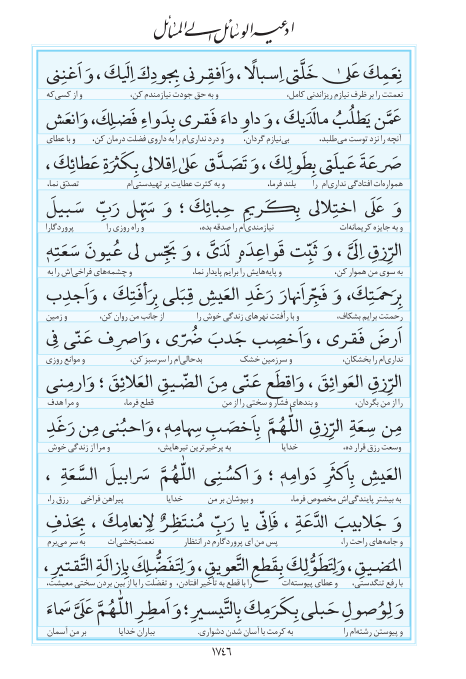 ادعیه الوسائل الی المسائل
نِعَمِكَ عَلىٰ خَلَّتى اِسبالًا ، وَاَفقِرنى بِجودِكَ اِلَيكَ ، وَ اَغنِنى
نعمتت را بر ظرف نیازم ریزاندنی کامل، و به حق جودت نیازمندم کن، و از کسی‌که
عَمَّن يَطلُبُ مالَدَيكَ ، وَ داوِ داءَ فَقرى بِدَواءِ فَضلِكَ، وَانعَش
آنچه را نزد توست می‌طلبد، بی‌نیازم گردان، و درد نداری‌ام را به داروی فضلت درمان کن، و با عطای
صَرعَةَ عَيلَتى بِطَولِكَ ، وَ تَصَدَّق عَلىٰ اِقلالى بِكَثرَةِ عَطائِكَ ،
همواره‌ات افتادگی نداری‌ام را بلند فرما، و به کثرت عطایت بر تهیدستی‌ام تصدّق نما،
وَ عَلَى اختِلالى بِكَريمِ حِبائِكَ ؛ وَ سَهِّل رَبِّ سَبيلَ
و به جایزه کریمانه‌ات نیازمندی‌ام را صدقه بده، و راه روزی را پروردگارا
الرِّزقِ اِلَىَّ ، وَ ثَبِّت قَواعِدَهُ لَدَىَّ ، وَ بَجِّس لى عُيونَ سَعَتِهِ
به سوی من هموار کن، و پایه‌هایش را برایم پایدار نما، و چشمه‌های فراخی‌اش را به
بِرَحمَتِكَ، وَ فَجِّر اَنهارَ رَغَدِ العَيشِ قِبَلى بِرَأفَتِكَ ، وَاَجدِب
رحمتت برایم بشکاف، و با رأفتت نهرهای زندگی خوش را از جانب من روان کن، و زمین
اَرضَ فَقرى ، وَاَخصِب جَدبَ ضُرّى ، وَاصرِف عَنّى فِى
نداری‌ام را بخشکان، و سرزمین خشک بدحالی‌ام را سرسبز کن، و موانع روزی
الرِّزقِ العَوائِقَ ، وَاقطَع عَنّى مِنَ الضّيقِ العَلائِقَ ؛ وَارمِنى
را از من بگردان، و بندهای فشار و سختی را از من قطع فرما، و مرا هدف
مِن سِعَةِ الرِّزقِ اللّٰهُمَّ بِاَخصَبِ سِهامِهِ، وَاحبُنى مِن رَغَدِ
وسعت رزق قرار ده، خدایا به پرخیرترین تیرهایش، و مرا از زندگی خوش
العَيشِ بِاَكثَرِ دَوامِهِ ؛ وَ اكسُنِى اللّٰهُمَّ سَرابيلَ السَّعَةِ ،
به بیشتر پایندگی‌اش مخصوص فرما، و بپوشان بر من خدایا پیراهن فراخی رزق را،
وَ جَلابيبَ الدَّعَةِ ، فَاِنّى يا رَبِّ مُنتَظِرٌ لِاِنعامِكَ ، بِحَذفِ
و جامه‌های راحت را، پس من ای پروردگارم در انتظار نعمت‌بخشی‌ات به سر می‌برم
المَضيقِ، وَلِتَطَوُّلِكَ بِقَطعِ التَّعويقِ، وَلِتَفَضُّلِكَ بِاِزالَةِ التَّقتيرِ ،
با رفع تنگدستی، و عطای پیوسته‌ات را با قطع به تأخیر افتادن، و تفضّلت را با از بین بردن سختی معیشت،
وَ لِوُصولِ حَبلى بِكَرَمِكَ بِالتَّيسيرِ ؛ وَ اَمطِرِ اللّٰهُمَّ عَلَىَّ سَماءَ
و پیوستن رشته‌ام را به کرمت با آسان شدن دشواری. بباران خدایا بر من آسمان
١٧٤٦